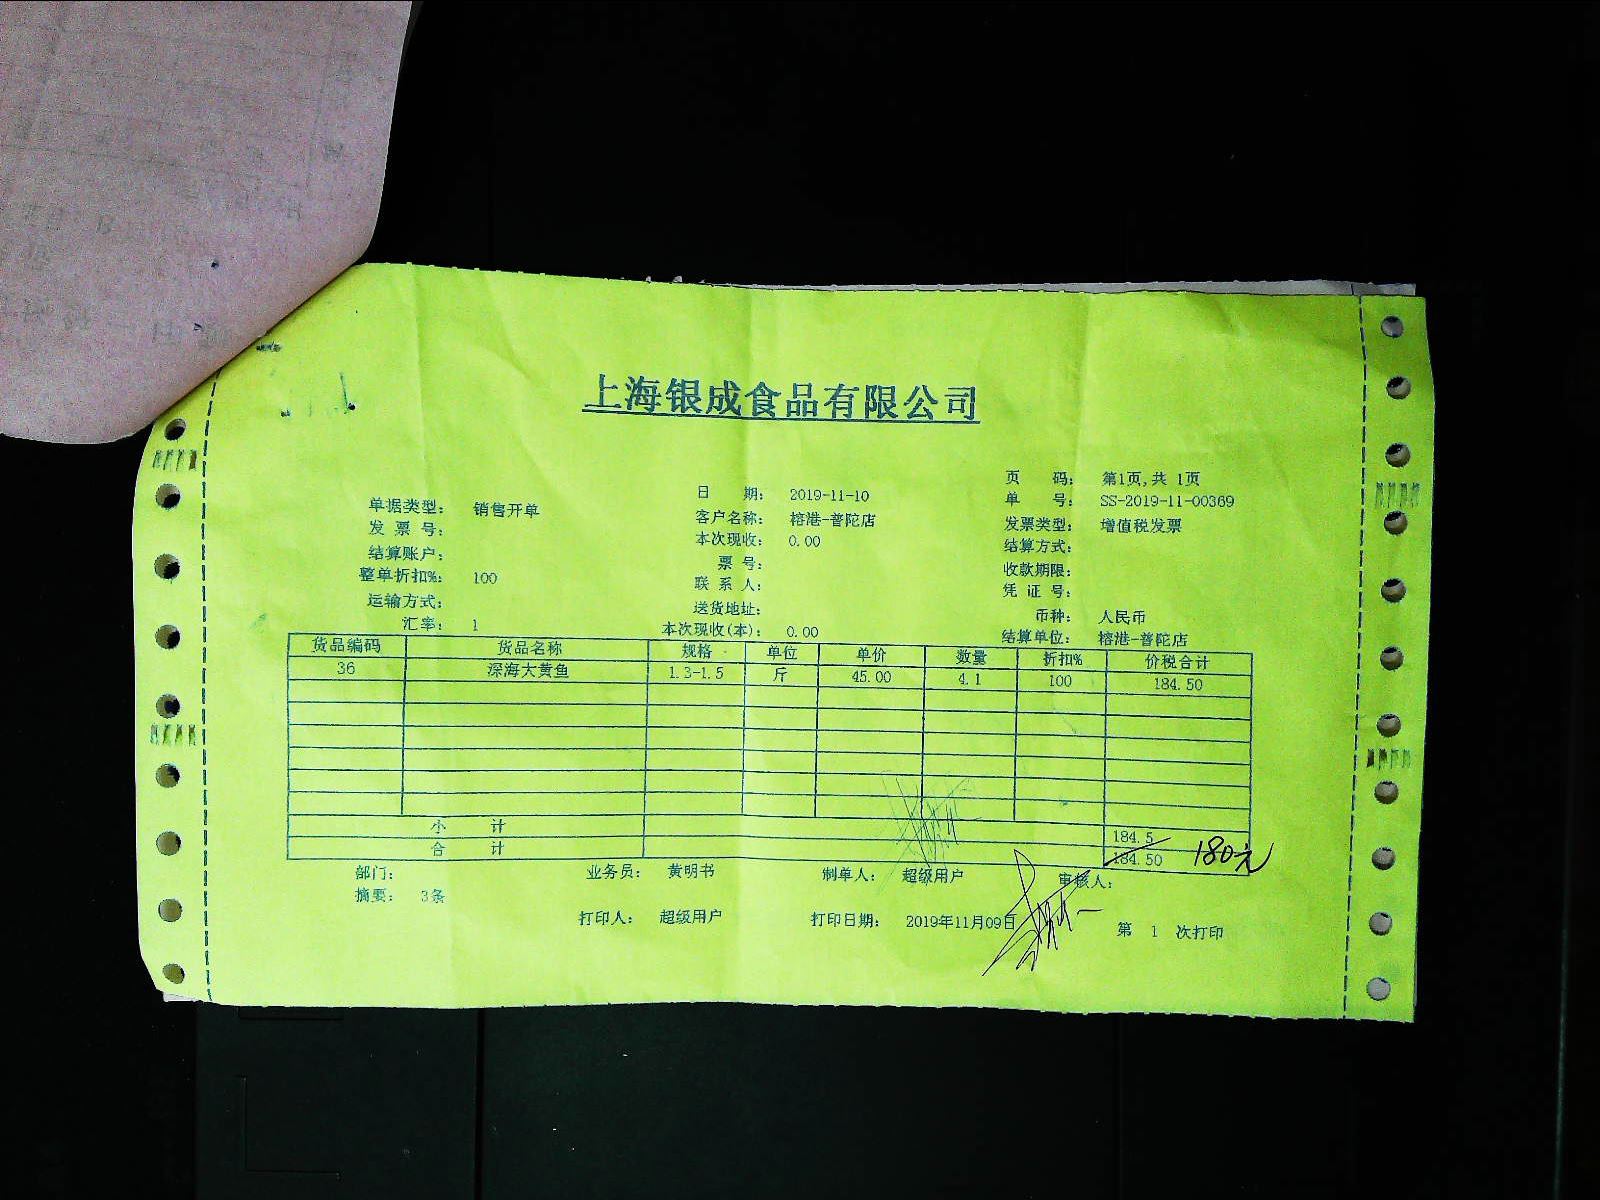 上海银成食品有限公司
页 码: 第1页,共 1页
日 期: 2019-11-10 单 号: SS-2019-11-00369
单据类型: 销售开单 客户名称: 榕港-普陀店 发票类型: 增值税发票
发 票 号: 本次现收: 0.00 结算方式:
结算账户: 票 号: 收款期限:
整单折扣%: 100 联 系 人: 凭 证 号:
运输方式: 送货地址: 币种: 人民币
汇率: 1 本次现收(本): 0.00 结算单位: 榕港-普陀店
货品编码 货品名称 规格 单位 单价 数量 折扣% 价税合计
36 深海大黄鱼 1.3-1.5 斤 45.00 4.1 100 184.50
小 计 184.5
合 计 184.50 180元
部门: 业务员: 黄明书 制单人: 超级用户 审核人:
摘要: 3条
打印人: 超级用户 打印日期: 2019年11月09日 第 1 次打印